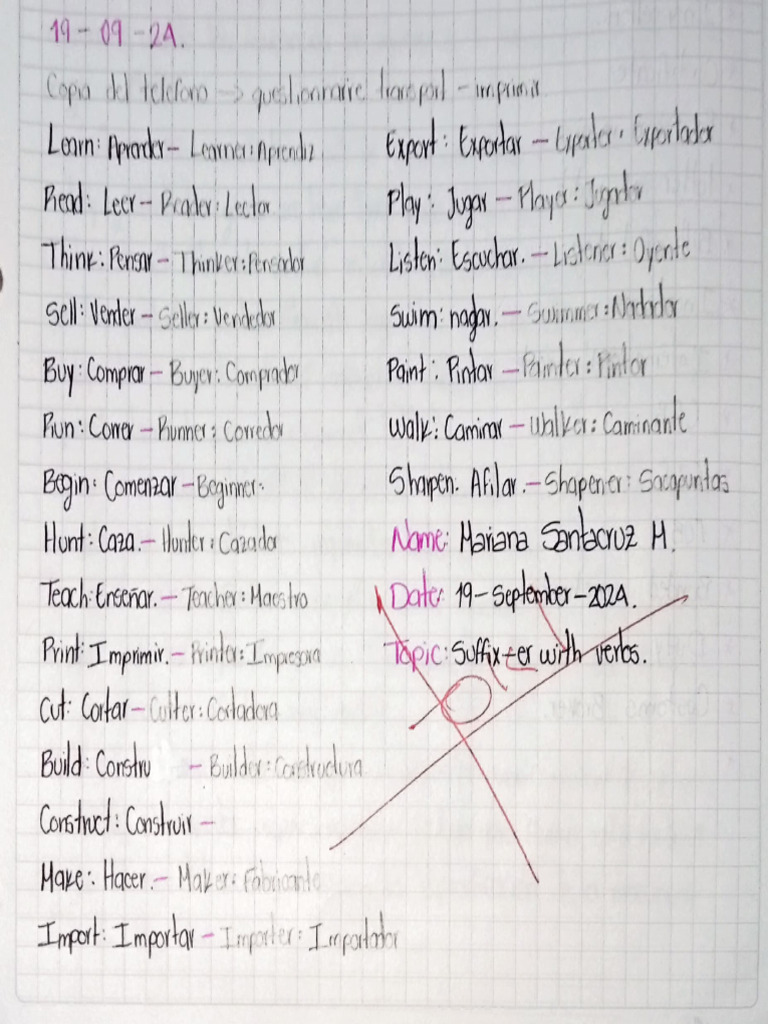 19-09-24.
Copia del telefono → questionnaire transport - imprimir
Learn: Aprender - Learner: Aprendiz
Read: Leer - Reader: Lector
Think: Pensar - Thinker: Pensador
Sell: Vender - Seller: Vendedor
Buy: Comprar - Buyer: Comprador
Run: Correr - Runner: Corredor
Begin: Comenzar - Beginner:
Hunt: Caza. - Hunter: Cazador
Teach: Enseñar. - Teacher: Maestro
Print: Imprimir. - Printer: Impresora
Cut: Cortar - Cutter: Cortadora
Build: Constru - Builder: Constructura
Construct: Construir -
Make: Hacer. - Maker: Fabricante
Import: Importar - Importer: Importador
Export: Exportar - Exporter: Exportador
Play: Jugar - Player: Jugador
Listen: Escuchar. - Listener: Oyente
Swim: nagar. - Swimmer: Nadador
Paint: Pintar - Painter: Pintor
Walk: Caminar - Walker: Caminante
Sharpen: Afilar. - Shapener: Sacapuntas
Name: Mariana Santacruz M.
Date: 19-September-2024.
Topic: Suffix -er with verbs.